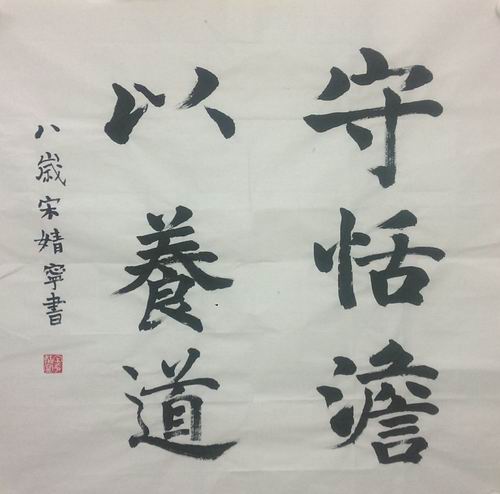 守恬澹
以養道
八歲宋婧寧書